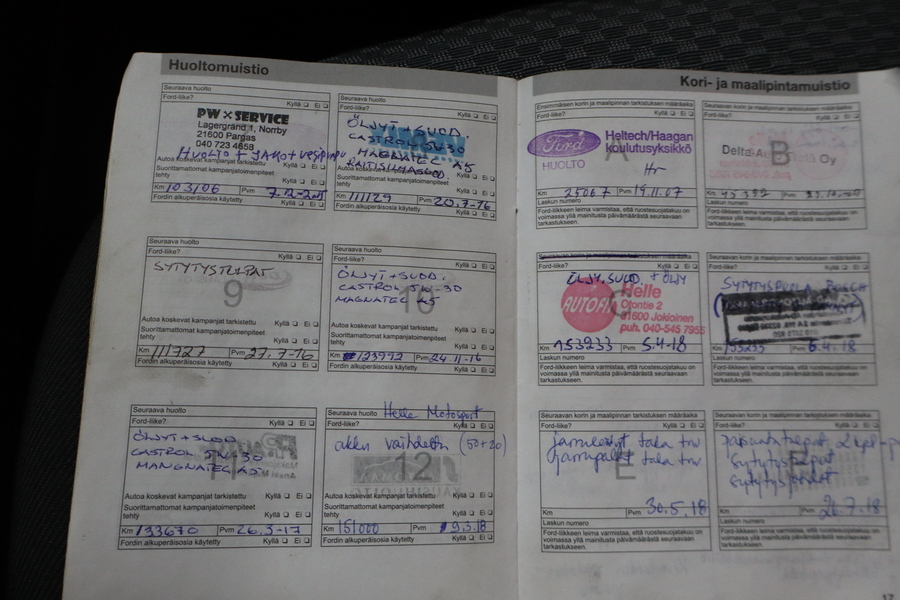 Huoltomuistio
Seuraava huolto
Ford-liike?
Kyllä ❏ Ei ❏
PW x SERVICE
Lagergränd 1, Norrby
21600 Pargas
040 723 4658
Huolto + jako + vesipumppu
Autoa koskevat kampanjat tarkistettu
Kyllä ❏ Ei ❏
Suorittamattomat kampanjatoimenpiteet
tehty
Kyllä ❏ Ei ❏
Km 103/06 Pvm 7.12-2015
Fordin alkuperäisosia käytetty Kyllä ❏ Ei ❏
Seuraava huolto
Ford-liike?
Kyllä ❏ Ei ❏
ÖLJYT + SUOD.
CASTROL 5W-30
MAGNATEC A5
Km 111129 Pvm 20.7-16
Fordin alkuperäisosia käytetty Kyllä ❏ Ei ❏
Seuraava huolto
Ford-liike?
Kyllä ❏ Ei ❏
SYTYTYSTULPAT
9
Autoa koskevat kampanjat tarkistettu
Kyllä ❏ Ei ❏
Suorittamattomat kampanjatoimenpiteet
tehty
Kyllä ❏ Ei ❏
Km 111727 Pvm 27.7-16
Fordin alkuperäisosia käytetty Kyllä ❏ Ei ❏
Seuraava huolto
Ford-liike?
Kyllä ❏ Ei ❏
ÖLJYT + SUOD.
CASTROL 5W-30
MAGNATEC A5
10
Autoa koskevat kampanjat tarkistettu
Kyllä ❏ Ei ❏
Suorittamattomat kampanjatoimenpiteet
tehty
Kyllä ❏ Ei ❏
Km 123992 Pvm 24.11-16
Fordin alkuperäisosia käytetty Kyllä ❏ Ei ❏
Seuraava huolto
Ford-liike?
Kyllä ❏ Ei ❏
ÖLJYT + SUOD
CASTROL 5W-30
MANGNATEC A5
11
Autoa koskevat kampanjat tarkistettu
Kyllä ❏ Ei ❏
Suorittamattomat kampanjatoimenpiteet
tehty
Kyllä ❏ Ei ❏
Km 133670 Pvm 26.3-17
Fordin alkuperäisosia käytetty Kyllä ❏ Ei ❏
Seuraava huolto Helle Motosport
Ford-liike?
Kyllä ❏ Ei ❏
akku vaihdettu (50+20)
12
Autoa koskevat kampanjat tarkistettu
Kyllä ❏ Ei ❏
Suorittamattomat kampanjatoimenpiteet
tehty
Kyllä ❏ Ei ❏
Km 151000 Pvm 19.3.18
Fordin alkuperäisosia käytetty Kyllä ❏ Ei ❏
Kori- ja maalipintamuistio
Ensimmäisen korin ja maalipinnan tarkistuksen määräaika
Ford
HUOLTO
Heltech/Haagan
koulutusyksikkö
A
Km 25067 Pvm 19.11.07
Laskun numero
Ford-liikkeen leima varmistaa, että ruostesuojatakuu on
voimassa yllä mainitusta päivämäärästä seuraavaan
tarkastukseen.
Seuraavan korin ja maalipinnan tarkistuksen määräaika
Delta-Au
B
Oy
Km Pvm
Laskun numero
Ford-liikkeen leima varmistaa, että ruostesuojatakuu on
voimassa yllä mainitusta päivämäärästä seuraavaan
tarkastukseen.
Ford-liike?
ÖLJY. SUOD. + ÖLJY
Helle
Ojontie 2
31600 Jokioinen
puh. 040-545 7955
Km 153233 Pvm 5.4-18
Laskun numero
Ford-liikkeen leima varmistaa, että ruostesuojatakuu on
voimassa yllä mainitusta päivämäärästä seuraavaan
tarkastukseen.
Ford-liike?
SYTYTYSPUOLA BOSCH
Km 153233 Pvm 6.4.18
Laskun numero
Ford-liikkeen leima varmistaa, että ruostesuojatakuu on
voimassa yllä mainitusta päivämäärästä seuraavaan
tarkastukseen.
Seuraavan korin ja maalipinnan tarkistuksen määräaika
Ford-liike?
jarrulevyt taka
jarrupalat taka
E
Km Pvm 30.5.18
Laskun numero
Ford-liikkeen leima varmistaa, että ruostesuojatakuu on
voimassa yllä mainitusta päivämäärästä seuraavaan
tarkastukseen.
Seuraavan korin ja maalipinnan tarkistuksen määräaika
Ford-liike?
sytytystulpat
sytytysjohdot
Km Pvm 26.7.18
Laskun numero
Ford-liikkeen leima varmistaa, että ruostesuojatakuu on
voimassa yllä mainitusta päivämäärästä seuraavaan
tarkastukseen.
17